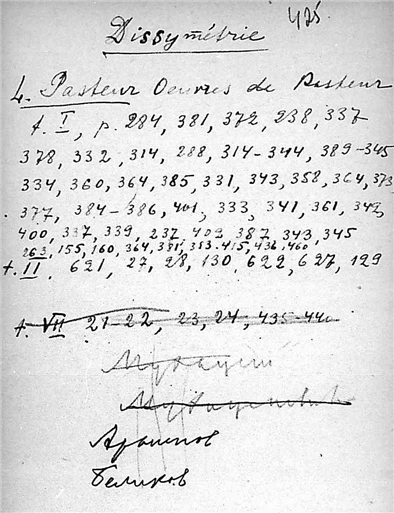 475.
Dissymétrie
L. Pasteur Oeuvres de Pasteur
t. I, p. 284, 381, 372, 238, 337
378, 332, 314, 288, 314-344, 389-345
334, 360, 364, 385, 331, 343, 358, 364, 373
377, 384-386, 401, 333, 341, 361, 342,
400, 337, 339, 237, 402, 387, 343, 345
263, 155, 160, 364, 381, 353-415, 436, 460
t. II, 621, 27, 28, 130, 622, 627, 129
t. VII 21-22, 23, 24, 435-440
Архипов
Беликов